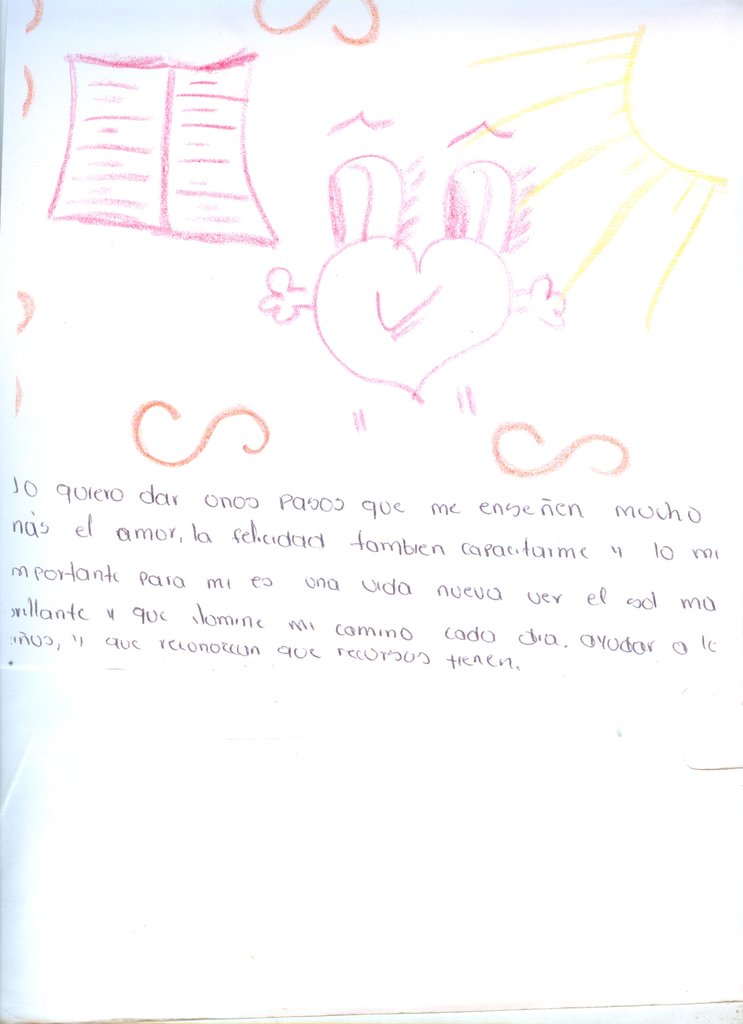 Jo quiero dar unos pasos que me enseñen mucho
más el amor, la felicidad tambien capacitarme y lo mi
mportante para mi es una vida nueva ver el sol mu
rillante y que ilomine mi camino cada dia. ayudar a lo
iños, y que reconozcan que recursos tienen.